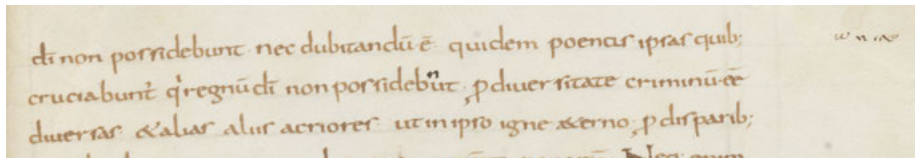 dī non possidebunt nec dubitandū ē quidem poenas ipsas quib;
cruciabunt̄ qi regnū dī non possidebunt ꝓ diversitate criminū eē
diversas & alias aliis acriores ut in ipso igne æterno ꝓ disparib;